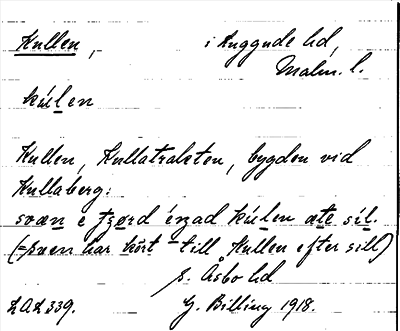 Kullen, i Luggude hd,
Malm. l.
kúlen
Kullen, Kullatrakten, bygden vid
Kullaberg:
svæn e tʒørd énad kúlen æte síl.
(=sven har kört till Kullen efter sill)
s. Åsbo hd
LAL 339. G. Billing 1918.